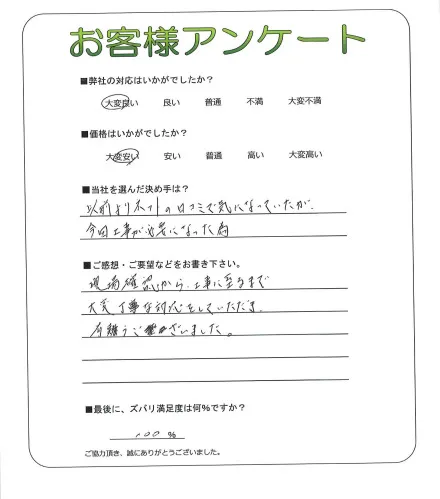 お客様アンケート
■弊社の対応はいかがでしたか?
大変良い 良い 普通 不満 大変不満
■価格はいかがでしたか?
大変安い 安い 普通 高い 大変高い
■当社を選んだ決め手は?
以前よりネットの口コミで気になっていたが、
今回工事が必要になった為
■ご感想・ご要望などをお書き下さい。
現場確認から、工事に至るまで
大変丁寧な対応をしていただき、
有難うございました。
■最後に、ズバリ満足度は何%ですか?
100 %
ご協力頂き、誠にありがとうございました。